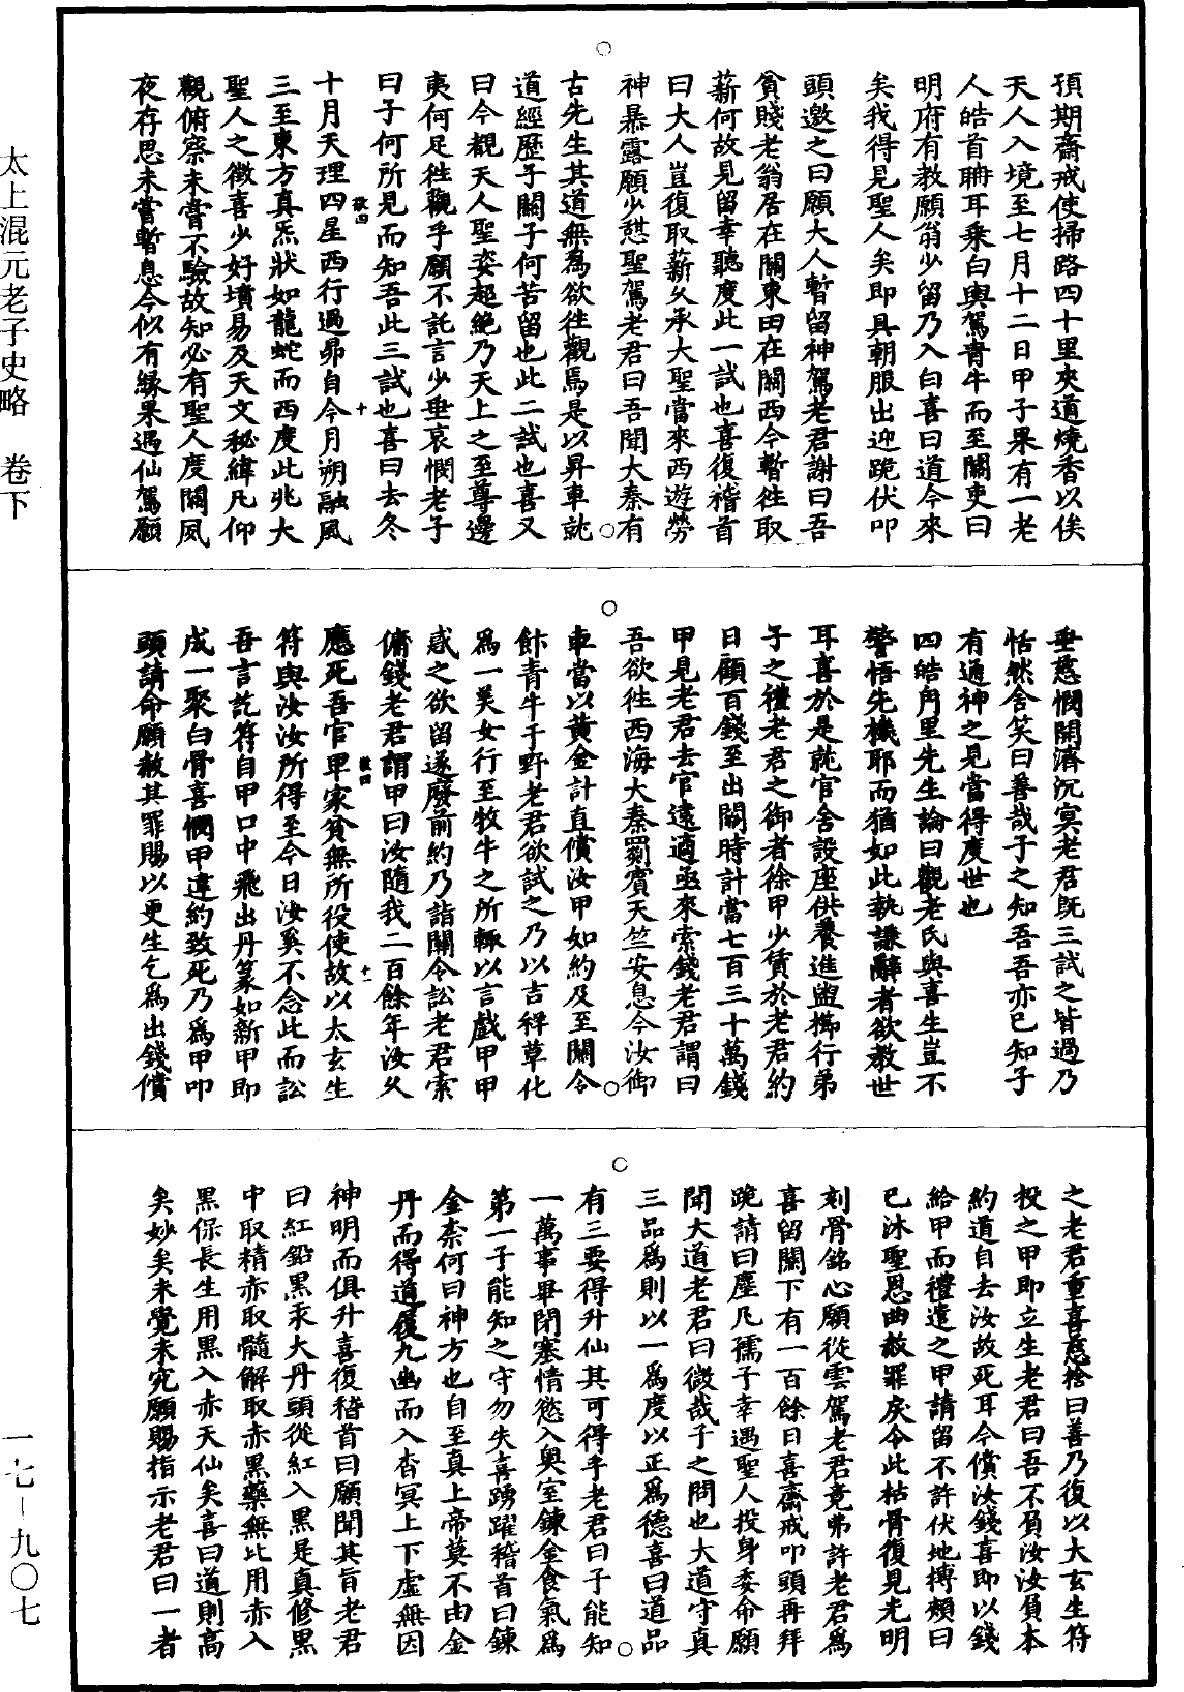 預期齋戒使掃路四十里夾道燒香以俟
天人入境至七月十二日甲子果有一老
人皓首聃耳乘白輿駕青牛而至關吏曰
明府有教願翁少留乃入白喜曰道今來
矣我得見聖人矣即具朝服出迎跪伏叩
頭邀之曰願大人暫留神駕老君謝曰吾
貧賤老翁居在關東田在關西今暫往取
薪何故見留幸聽度此一試也喜復稽首
曰大人豈復取薪久承大聖當來西遊勞
神暴露願少憩聖駕老君曰吾聞大秦有
古先生其道無為欲往觀焉是以昇車就
道經歷于關子何苦留也此二試也喜又
曰今觀天人聖姿超絕乃天上之至尊邊
夷何足往觀乎願不託言少垂哀憫老子
曰子何所見而知吾此三試也喜曰去冬
敬四 十
十月天理四星西行過昴自今月朔融風
三至東方真炁狀如龍蛇而西度此兆大
聖人之徵喜少好墳易及天文秘緯凡仰
觀俯察未嘗不驗故知必有聖人度關夙
夜存思未嘗暫息今似有緣果遇仙駕願
垂慈憫開濟沉冥老君既三試之皆過乃
恬然含笑曰善哉子之知吾吾亦已知子
有通神之見當得度世也
四皓角里先生論曰觀老氏與喜生豈不
警悟先機耶而猶如此執謙辭者欲教世
耳喜於是就官舍設座供養進盥櫛行弟
子之禮老君之御者徐甲少賃於老君約
日顧百錢至出關時計當七百三十萬錢
甲見老君去官遠適亟來索錢老君謂曰
吾欲往西海大秦罽賓天竺安息令汝御
車當以黃金計直償汝甲如約及至關令
飰青牛于野老君欲試之乃以吉祥草化
為一美女行至牧牛之所輒以言戲甲甲
惑之欲留遂廢前約乃詣關令訟老君索
傭錢老君謂甲曰汝隨我二百餘年汝久
敬四 十一
應死吾官卑家貧無所役使故以太玄生
符與汝汝所得至今日汝奚不念此而訟
吾言訖符自甲口中飛出丹篆如新甲即
成一聚白骨喜憫甲違約致死乃為甲叩
頭請命願赦其罪賜以更生乞為出錢償
之老君重喜慈捨曰善乃復以太玄生符
投之甲即立生老君曰吾不負汝汝負本
約道自去汝故死耳今償汝錢喜即以錢
給甲而禮遣之甲請留不許伏地搏頰曰
已沐聖恩曲赦罪戾令此枯骨復見光明
刻骨銘心願從雲駕老君竟弗許老君為
喜留關下有一百餘日喜齋戒叩頭再拜
跪請曰塵凡孺子幸遇聖人投身委命願
聞大道老君曰微哉子之問也大道守真
三品為則以一為度以正為德喜曰道品
有三要得升仙其可得乎老君曰子能知
一萬事畢閉塞情慾入奧室鍊金食氣為
第一子能知之守勿失喜踴躍稽首曰鍊
金柰何曰神方也自至真上帝莫不由金
丹而得道復九幽而入杳冥上下虛無因
神明而俱升喜復稽首曰願聞其旨老君
曰紅鉛黑汞大丹頭從紅入黑是真修黑
中取精赤取髓解取赤黑藥無比用赤入
黑保長生用黑入赤天仙矣喜曰道則高
矣妙矣未覺未究願賜指示老君曰一者
太上混元老子史略 卷下
一七—九〇七